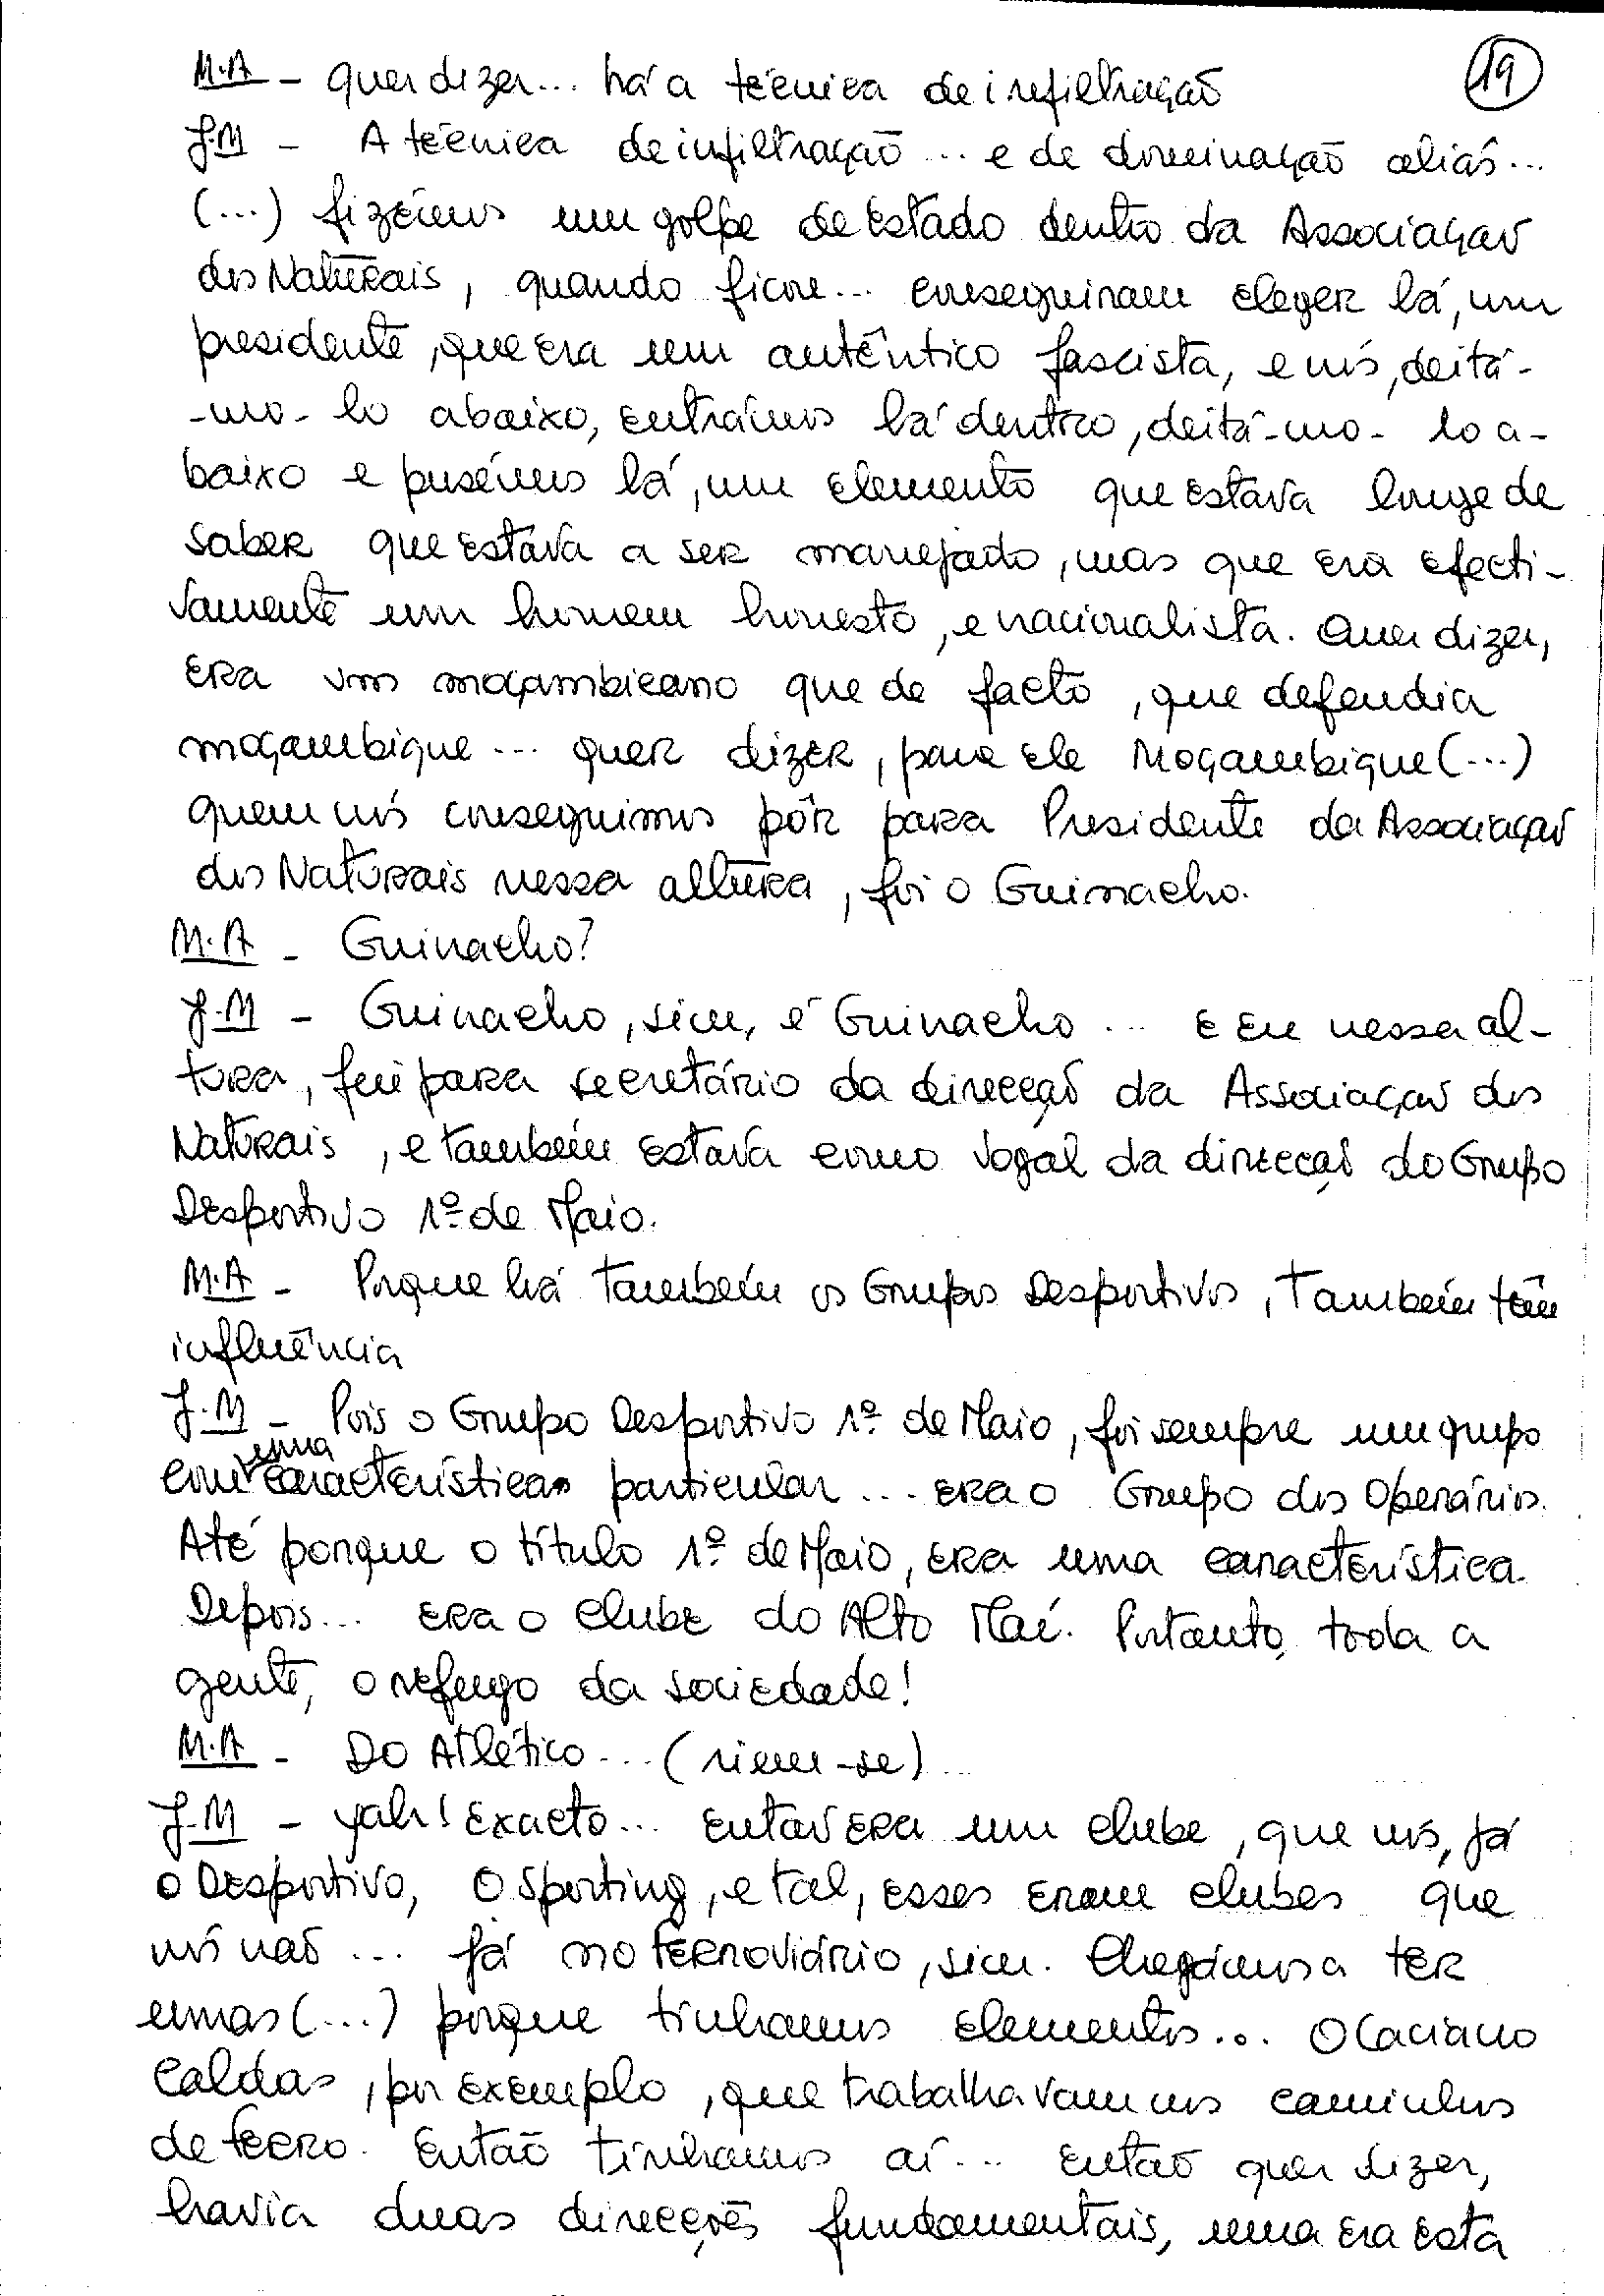 19
M.A - quer dizer... há a técnica de infiltração
J.M - A técnica de infiltração... e de dominação aliás...
(...) fizémos um golpe de Estado dentro da Associação
dos Naturais, quando ficou... conseguiram eleger lá, um
presidente, que era um autêntico fascista, e nós, deitá-
-mo-lo abaixo, entrámos lá dentro, deitá-mo-lo a-
baixo e pusémos lá, um elemento que estava longe de
saber que estava a ser manejado, mas que era efecti-
vamente um homem honesto, e nacionalista. Quer dizer,
era um moçambicano que de facto, que defendia
moçambique... quer dizer, para ele Moçambique (...)
quem nós conseguimos pôr para Presidente da Associação
dos Naturais nessa altura, foi o Guinacho.
M.A - Guinacho?
J.M - Guinacho, sim, é Guinacho... e eu nessa al-
tura, fui para secretário da direcção da Associação dos
Naturais, e também estava como vogal da direcção do Grupo
Desportivo 1º de Maio.
M.A - Porque há também os Grupos Desportivos, também têm
influência
J.M - Pois o Grupo Desportivo 1º de Maio, foi sempre um grupo
com uma característica particular... era o Grupo dos Operários.
Até porque o título 1º de Maio, era uma característica.
Depois... era o clube do Alto Maé. Portanto, toda a
gente, o refugo da sociedade!
M.A - Do Atlético... (riem-se)...
J.M - Yah! Exacto... então era um clube, que nós, já
o Desportivo, o Sporting, e tal, esses eram clubes que
nós não... já no Ferroviário, sim. Chegámos a ter
umas (...) porque tinhamos elementos... O Caciano
Caldas, por exemplo, que trabalhavam nos caminhos
de ferro. Então tinhamos aí... então quer dizer,
havia duas direcções fundamentais, uma era esta